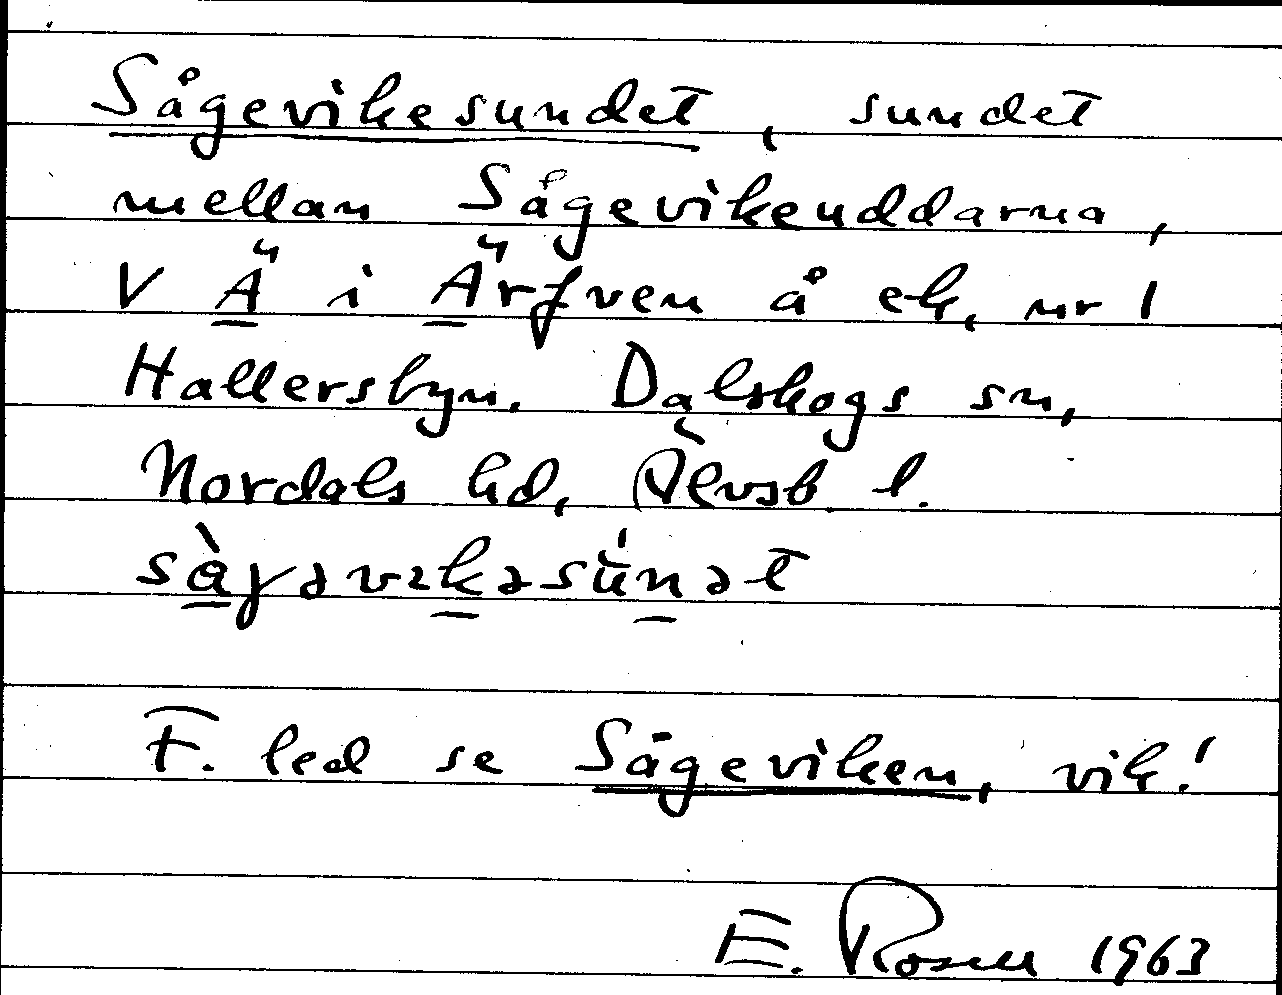 Sågevikesundet, sundet
mellan Sågevikenuddarna,
V Ä i Ärfven å ek, nr 1
Hallersbyn. Dalskogs sn,
Nordals hd, Älvsb. l.
F. led se Sågeviken, vik!
E. Rosell 1963